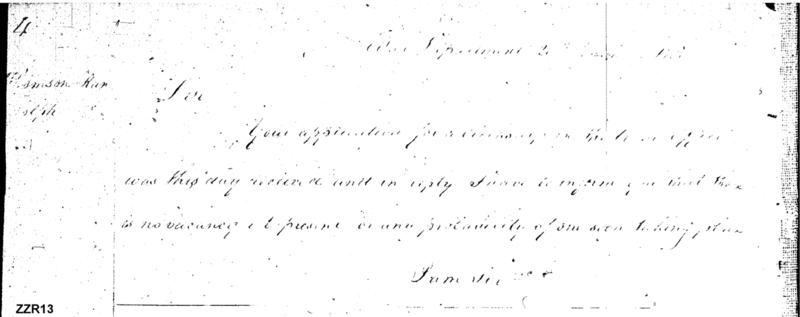 4
War Department 20
Ran
olph
Sir
Your application for a clerkship in the office
was this day received and in reply I have to inform you that there
is no vacancy at present or any probability of one soon taking place
I am Sir &c
ZZR13